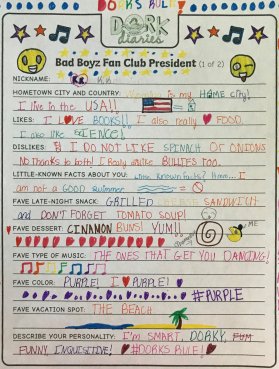 DORKS RULE!
DORK
diaries
Bad Boyz Fan Club President (1 of 2)
NICKNAME:
HOMETOWN CITY AND COUNTRY: is my HOME city!
I live in the USA!!
LIKES: I L♥VE BOOKS!! I also really ♥ FOOD.
I also like SCIENCE!
DISLIKES: I DO NOT LIKE SPINACH OR ONIONS
No thanks to both! I Really dislike BULLIES TOO.
LITTLE-KNOWN FACTS ABOUT YOU: Little Known Facts? Hmm... I
am not a GOOD swimmer
FAVE LATE-NIGHT SNACK: GRILLED CHEESE SANDWICH
and DON'T FORGET TOMATO SOUP!
FAVE DESSERT: CINNAMON BUNS! YUM!!
ME
FAVE TYPE OF MUSIC: THE ONES THAT GET YOU DANCING!
FAVE COLOR: PURPLE! I ♥ PURPLE!
#PURPLE
FAVE VACATION SPOT: THE BEACH
DESCRIBE YOUR PERSONALITY: I'm SMART, DORKY, FUM
FUNNY, INQUISITIVE! #DORKS RULE!